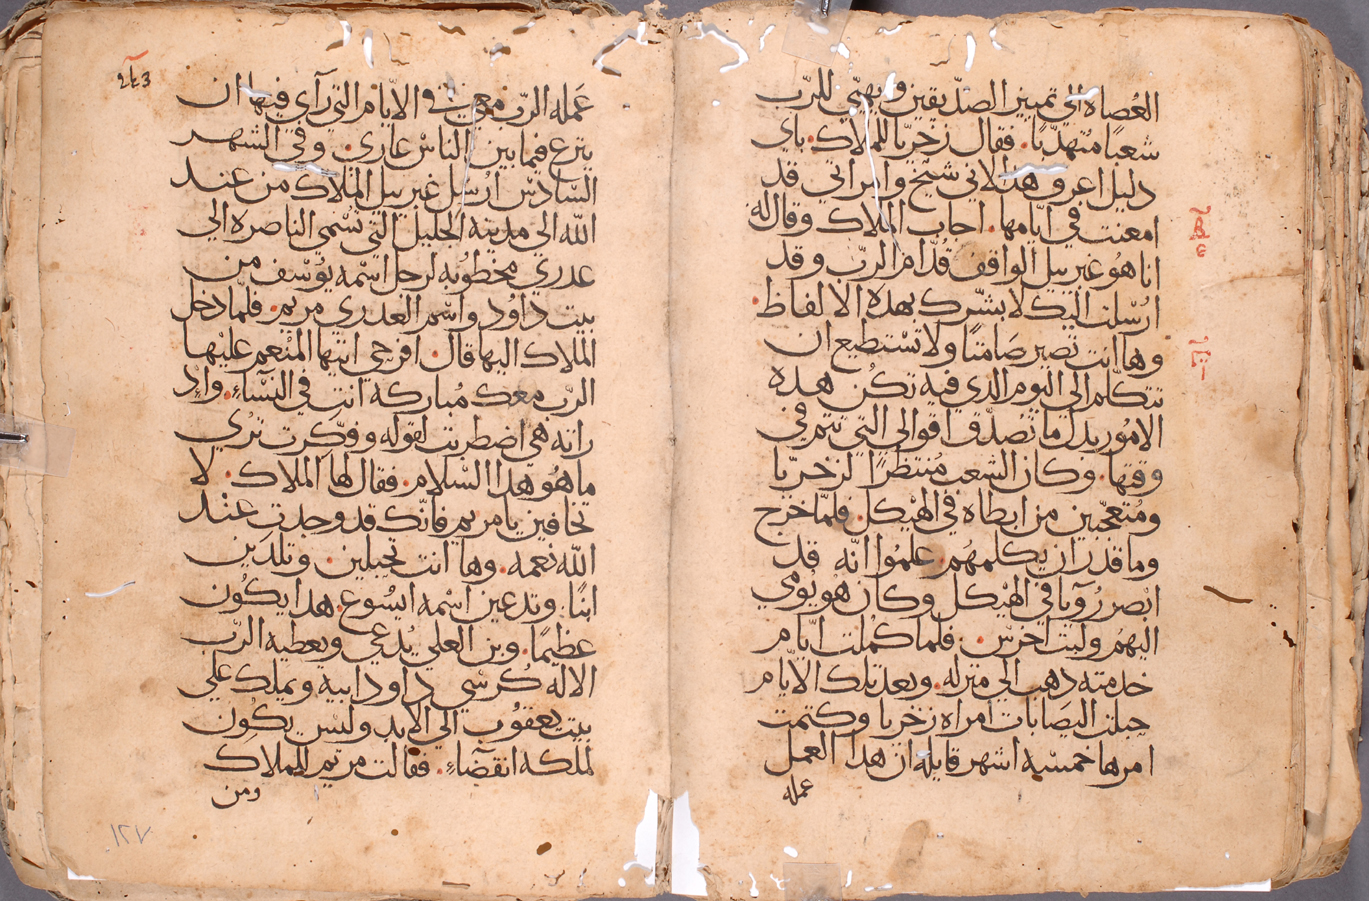 العُصاه الي تمييز الصدّيقين ويهيّي للربّ
شعبًا مُتهدّبًا. فقال زخريّا للملاك. باي
دليل اعرف هدا لاني شيخ وامراتي قد
امعنت في ايّامها. اجاب الملاك وقال له
انا هُو غبرييل الواقف قدّام الربّ وقد
ارُسْلت اليك لابشّرك بهده الالفاظ.
وها انت تصير صَامتًا ولا تسْتطيع ان
تتكلم الى اليوم الدي فيه تكُن هده
الامُور بدل ما تُصدّق اقوالي التي تتم في
وقتها. وكان الشعب مُنتظرًا لزخريّا
ومُتعجّبين من ابطاه في الهيْكل. فلمّا خرج
وما قدر ان يكلمهُم. علمُوا انّه قد
ابصر رُويا في الهيْكل وكان هُو يومي
اليهمُ ولبت اخرسْ. فلما كمُلت ايّام
خدمته دهب الي منزله. وبعد تلك الايّام
حبلت اليصَابات امراه زخريا وكتمت
امرها خمسْه اشهر قايله ان هدا العمل
عمله
243
عَمله الربّ معي في الايّام التي رآي فيها ان
ينزع فيما بين الناسْ عاري. وفي الشهر
السّادسْ ارُسْل غبرييل الملاك من عند
الله الى مدينه الجليل التي تسْمي الناصره الي
عدري مخطوُبه لرجل اسْمه يوُسْف من
بيت داوُد واسْم العدري مريم. فلمّا دخل
الملاك اليها قال. افرحي ايتها المنْعم عليْها
الربّ معك مُباركة انتِ في النسْاء. واد
راته هي اضطربت لقوله وفكرت تري
ما هُو هدا السْلام. فقال لها الملاك. لا
تخافين يا مريم فانّك قد وجدتِ عند
الله نعمه. وها انت تحبلين. وتلدين
ابنًا. وتدعين اسْمه ايسُوع. هدا يكُون
عظيمًا. وبن العلي يُدعي ويعطيه الربّ
الاله كُرسْي داود ابيه ويملك علي
بيت يعقوُب الي الابد وليسْ يكُون
لملكه انقضآء. فقالت مريم للملاك
ومن
١٢٧